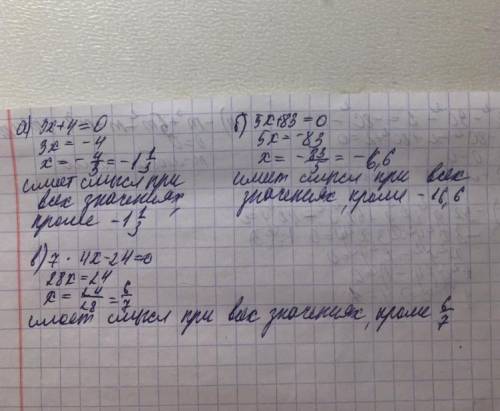 а) 3x+4=0
3x = -4
x = - 4/3 = -1 1/3
имеет смысл при
всех значениях,
кроме -1 1/3
б) 5x+83=0
5x = -83
x = - 83/5 = -6,6
имеет смысл при всех
значениях, кроме -16,6
в) 7 · 4x-24=0
28x=24
x = 24/28 = 6/7
имеет смысл при всех значениях, кроме 6/7